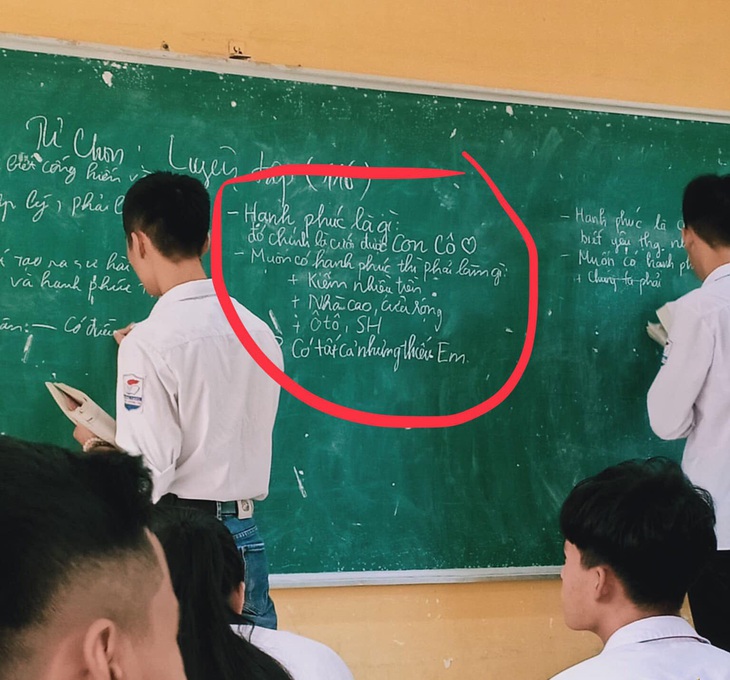 Tự Chọn: Luyện tập (
biết cống hiến và
phải
tạo ra sự
và hạnh phúc
Có được
- Hạnh phúc là gì
đó chính là cưới được con Cô ♡
- Muốn có hạnh phúc thì phải làm gì:
+ Kiếm nhiều tiền
+ Nhà cao, cửa rộng
+ Ô tô, SH
Có tất cả nhưng thiếu Em.
- Hạnh phúc là
biết yêu thg.
- Muốn có hạnh
+ Chúng ta phải